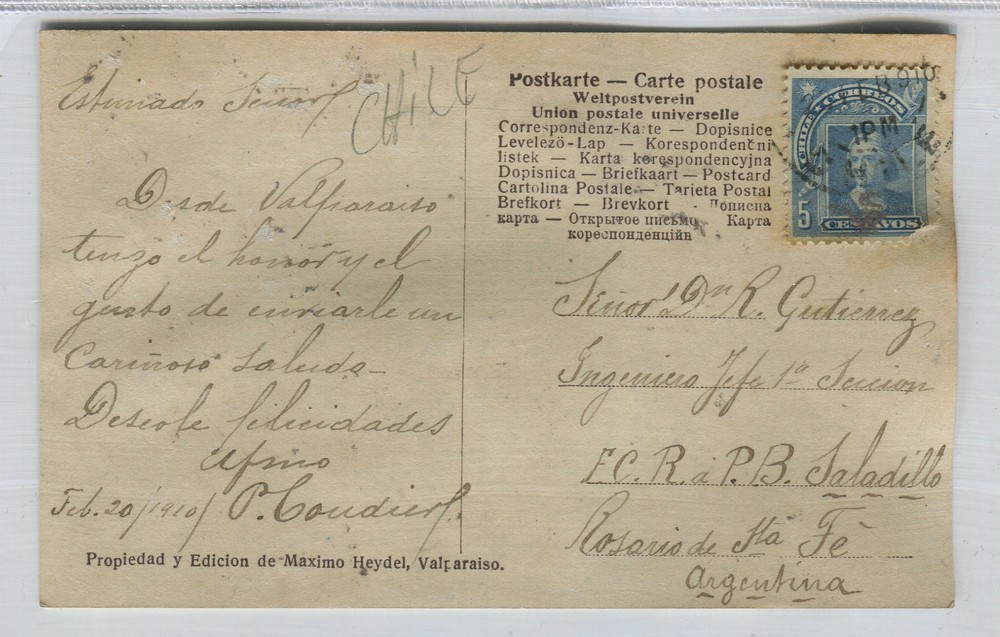 CHILE
Estimado Señor
Desde Valparaiso
tengo el honor y el
gusto de enviarle un
Cariñoso saludo
Deseole felicidades
Afmo
Feb. 20/1910/ P.
Propiedad y Edicion de Maximo Heydel, Valparaiso.
Postkarte — Carte postale
Weltpostverein
Union postale universelle
Correspondenz-Karte — Dopisnice
Levelező-Lap — Korespondenční
listek — Karta korespondencyjna
Dopisnica — Briefkaart — Postcard
Cartolina Postale — Tarjeta Postal
Brefkort — Brevkort - Дописна
карта — Открытое письмо Карта
кореспонденційн
CHILE CORREOS
1PM
5 CENTAVOS
Señor Dn R. Gutierrez
Ingeniero Jefe 1a Seccion
F.C. R. á P.B. Saladillo
Rosario de Sta Fé
Argentina